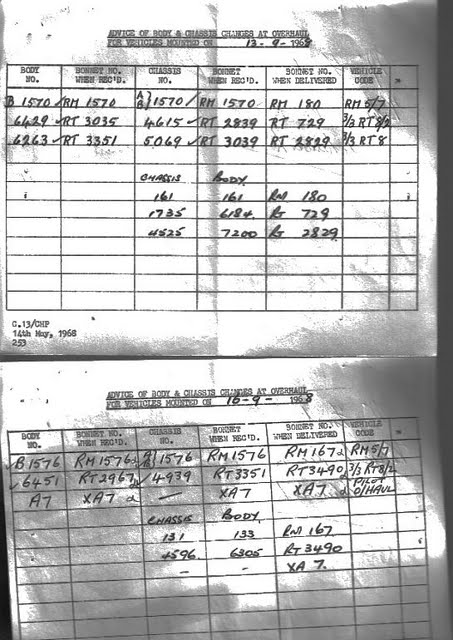 ADVICE OF BODY & CHASSIS CHANGES AT OVERHAUL
FOR VEHICLES MOUNTED ON 13-9-1968
BODY NO. BONNET NO. WHEN REC'D. CHASSIS NO. BONNET WHEN REC'D. BONNET NO. WHEN DELIVERED VEHICLE CODE
B 1570 RM 1570 A/B} 1570 RM 1570 RM 180 RM 5/7
6429 RT 3035 4615 RT 2839 RT 729 3/3 RT 8/2
6263 RT 3351 5069 RT 3039 RT 2829 3/3 RT 8
CHASSIS BODY
161 161 RM 180
1735 6184 RT 729
4525 7200 RT 2829
C.13/CHP
14th May, 1968
253
ADVICE OF BODY & CHASSIS CHANGES AT OVERHAUL
FOR VEHICLES MOUNTED ON 16-9-1968
BODY NO. BONNET NO. WHEN REC'D. CHASSIS NO. BONNET WHEN REC'D. BONNET NO. WHEN DELIVERED VEHICLE CODE
B1576 RM1576 A/B} 1576 RM1576 RM167 RM5/7
6451 RT2967 4939 RT3351 RT3490 3/3 RT8/2
A7 XA7 — XA7 XA7 PILOT O/HAUL
CHASSIS BODY
131 133 RM 167
4596 6305 RT 3490
- - XA 7.